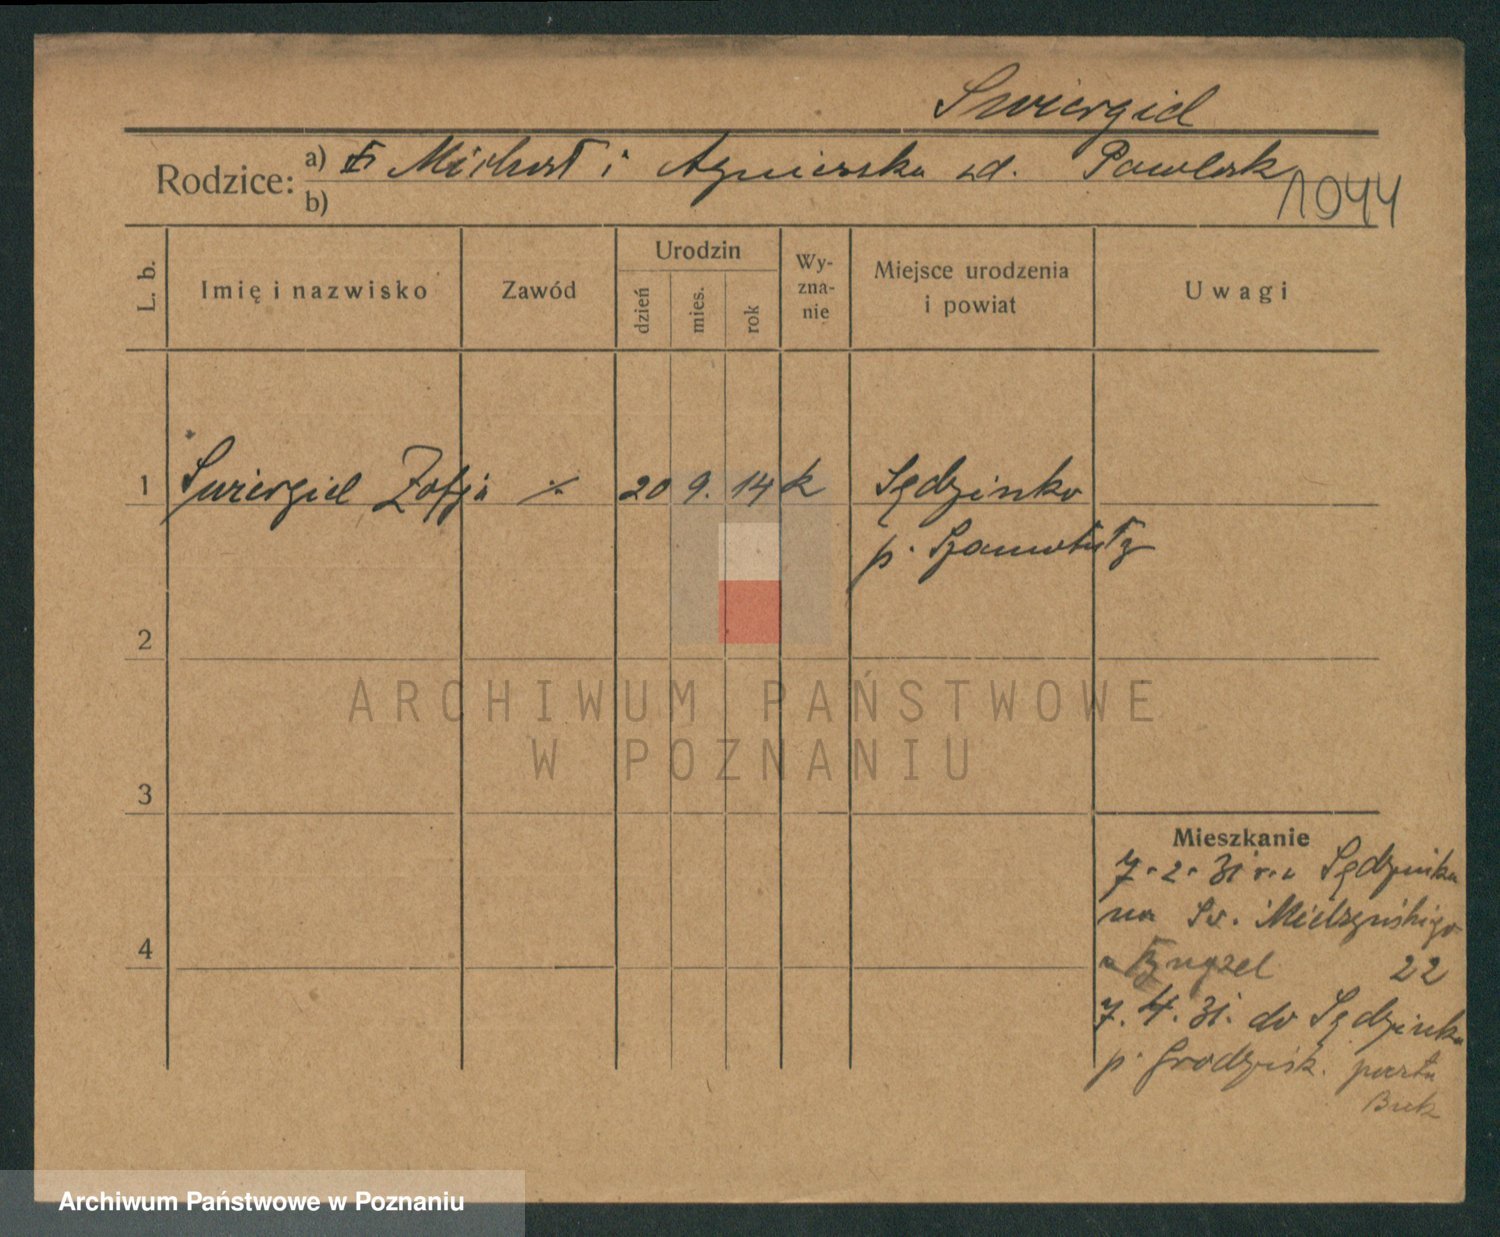 Swiergiel
Rodzice: a) Michał i Agnieszka zd. Pawlak
b)
1044
L. b.
Imię i nazwisko
Zawód
Urodzin
dzień
mies.
rok
Wy-
zna-
nie
Miejsce urodzenia
i powiat
Uwagi
1 Swiergiel Zofja 20 9. 14 k Sędzinko
p. Szamotuły
2
3
4
ARCHIWUM PAŃSTWOWE
W POZNANIU
Mieszkanie
7.2.31 Sędzinka
na Św. Mielżyńskiego
22
7.4.31. do Sędzinka
p. Grodzisk. poczta
Buk
Archiwum Państwowe w Poznaniu